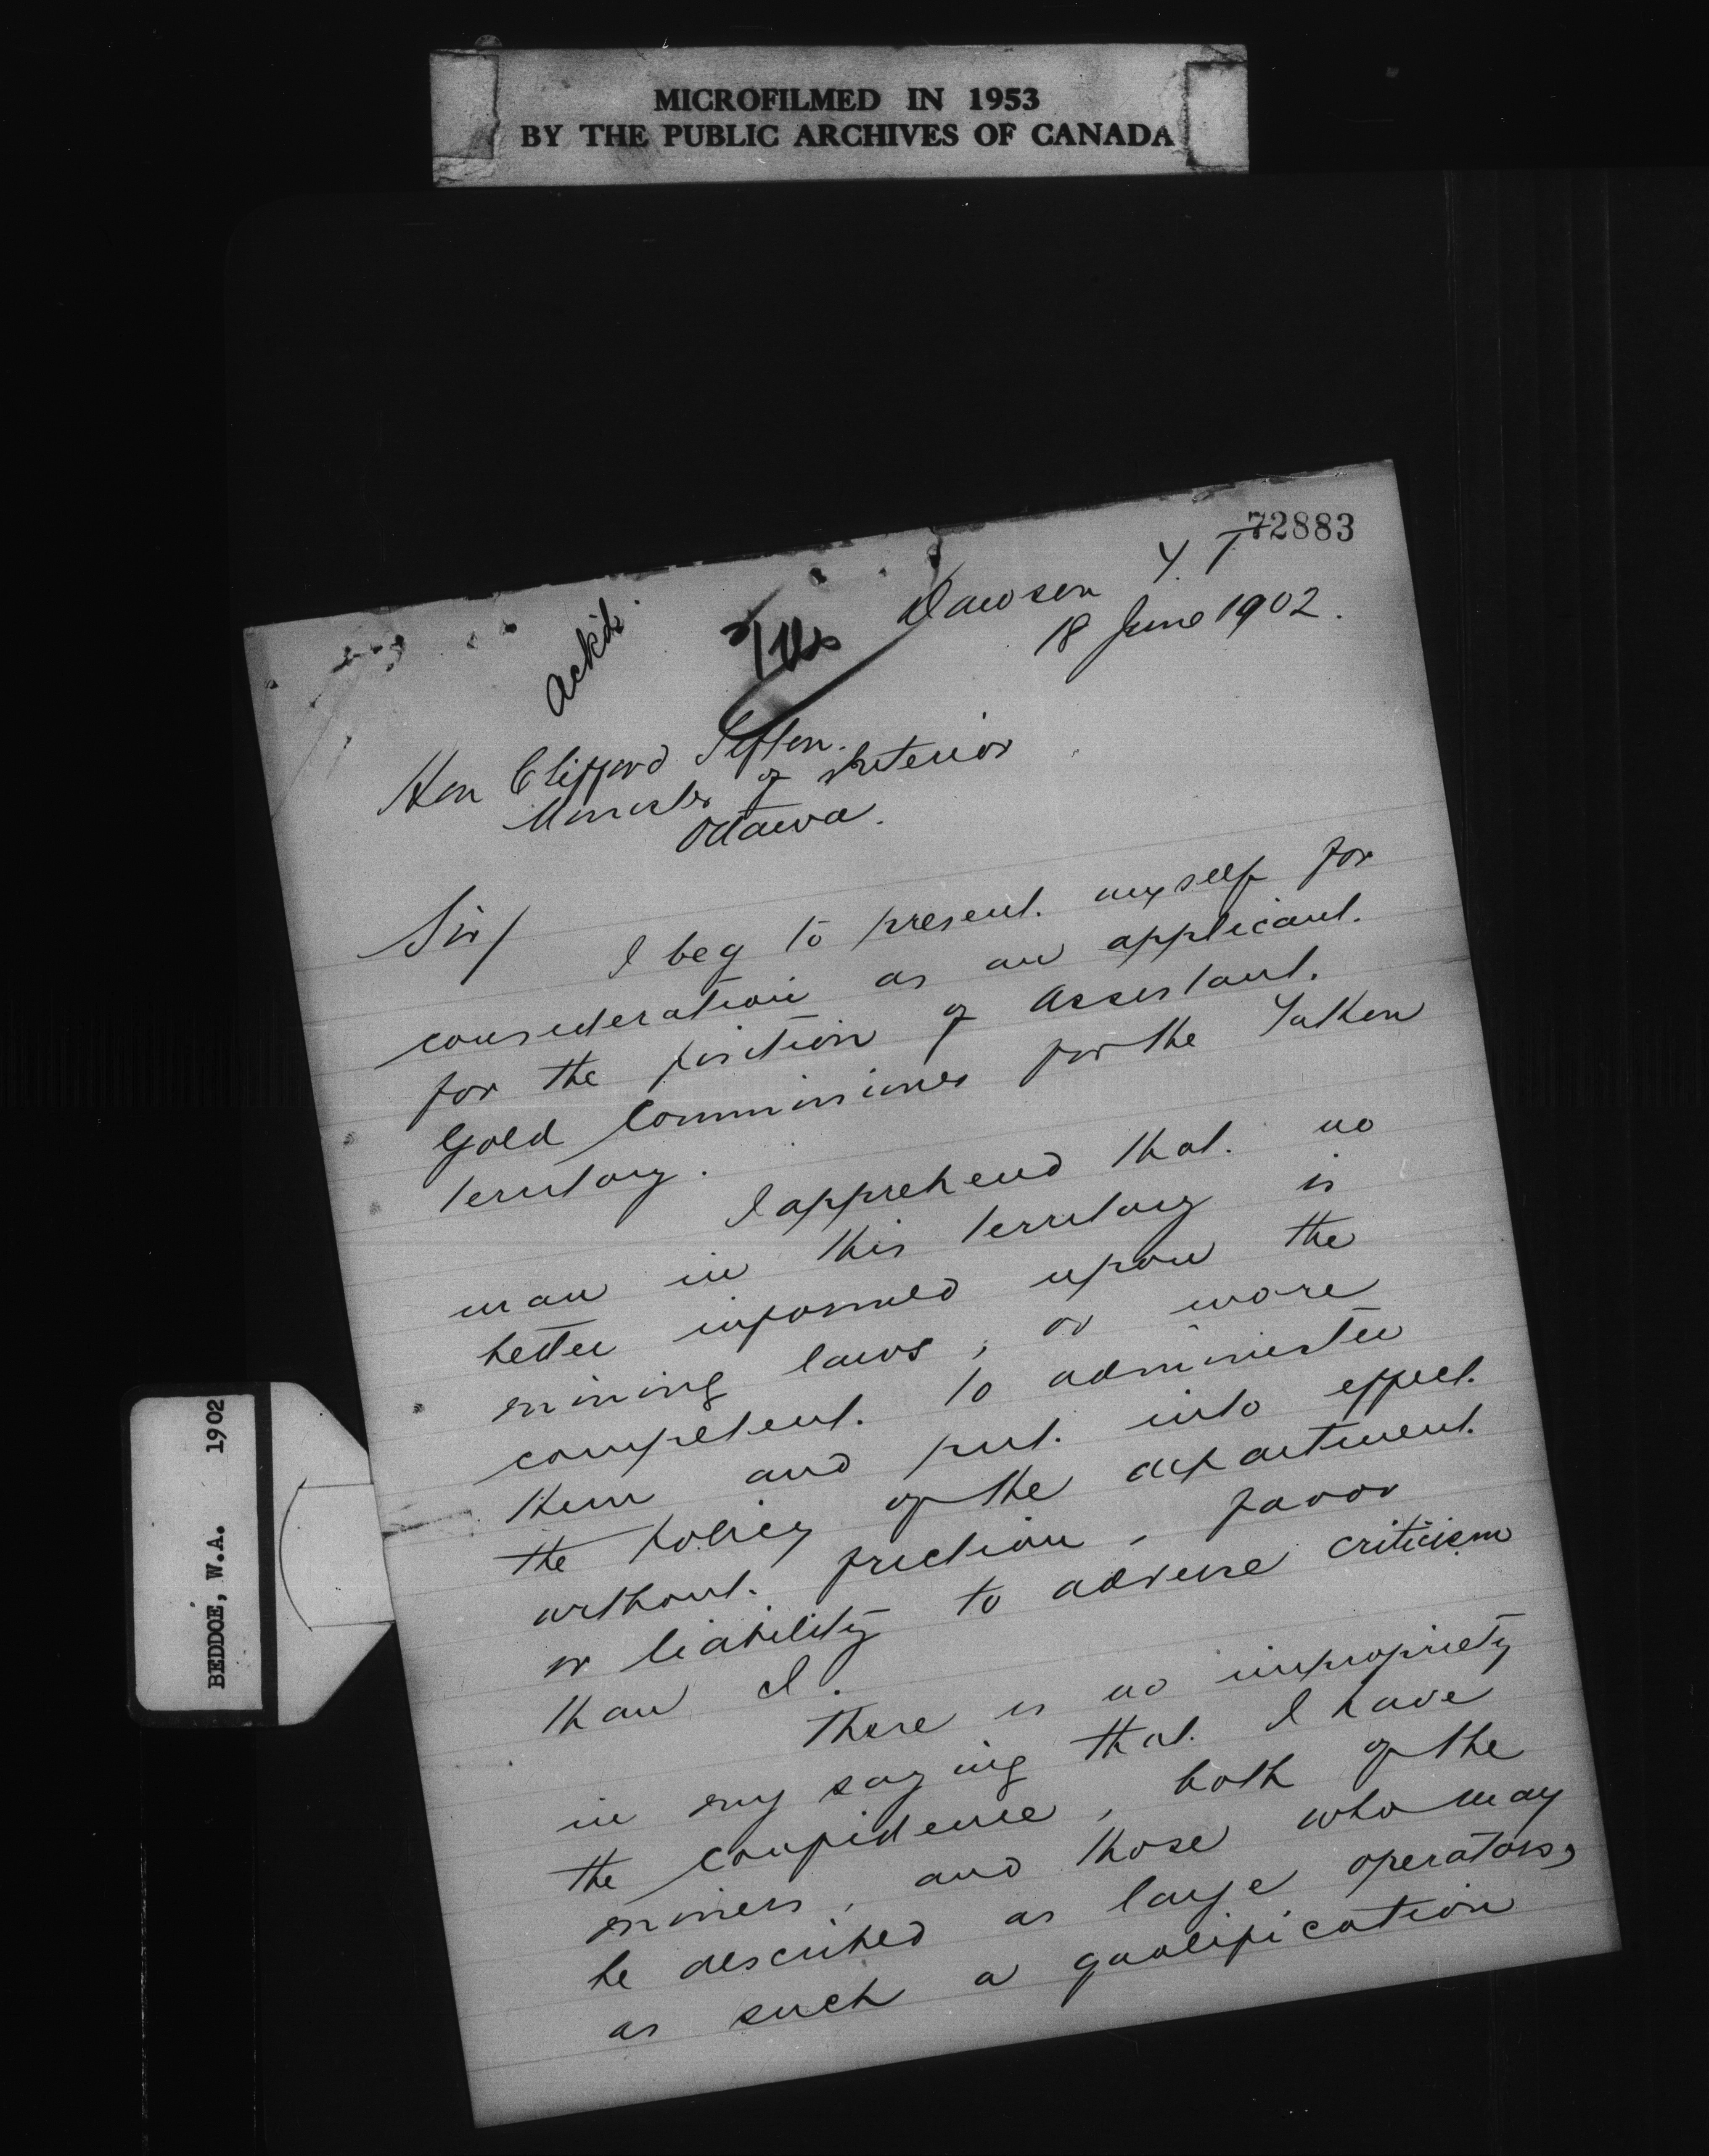 MICROFILMED IN 1953
BY THE PUBLIC ARCHIVES OF CANADA
72883
Dawson Y. T.
18 June 1902.
Ack'd.
Hon Clifford Sifton.
Minister of Interior
Ottawa.
Sir/
I beg to present myself for
consideration as an applicant
for the position of Assistant
Gold Commissioner for the Yukon
territory.
I apprehend that no
man in this territory is
better informed upon the
mining laws, or more
competent to administer
them and put into effect
the policy of the department
without friction, favor
or liability to adverse criticism
than I.
There is no impropriety
in my saying that I have
the confidence, both of the
miners, and those who may
be described as large operators,
as such a qualification
BEDDOE, W.A. 1902